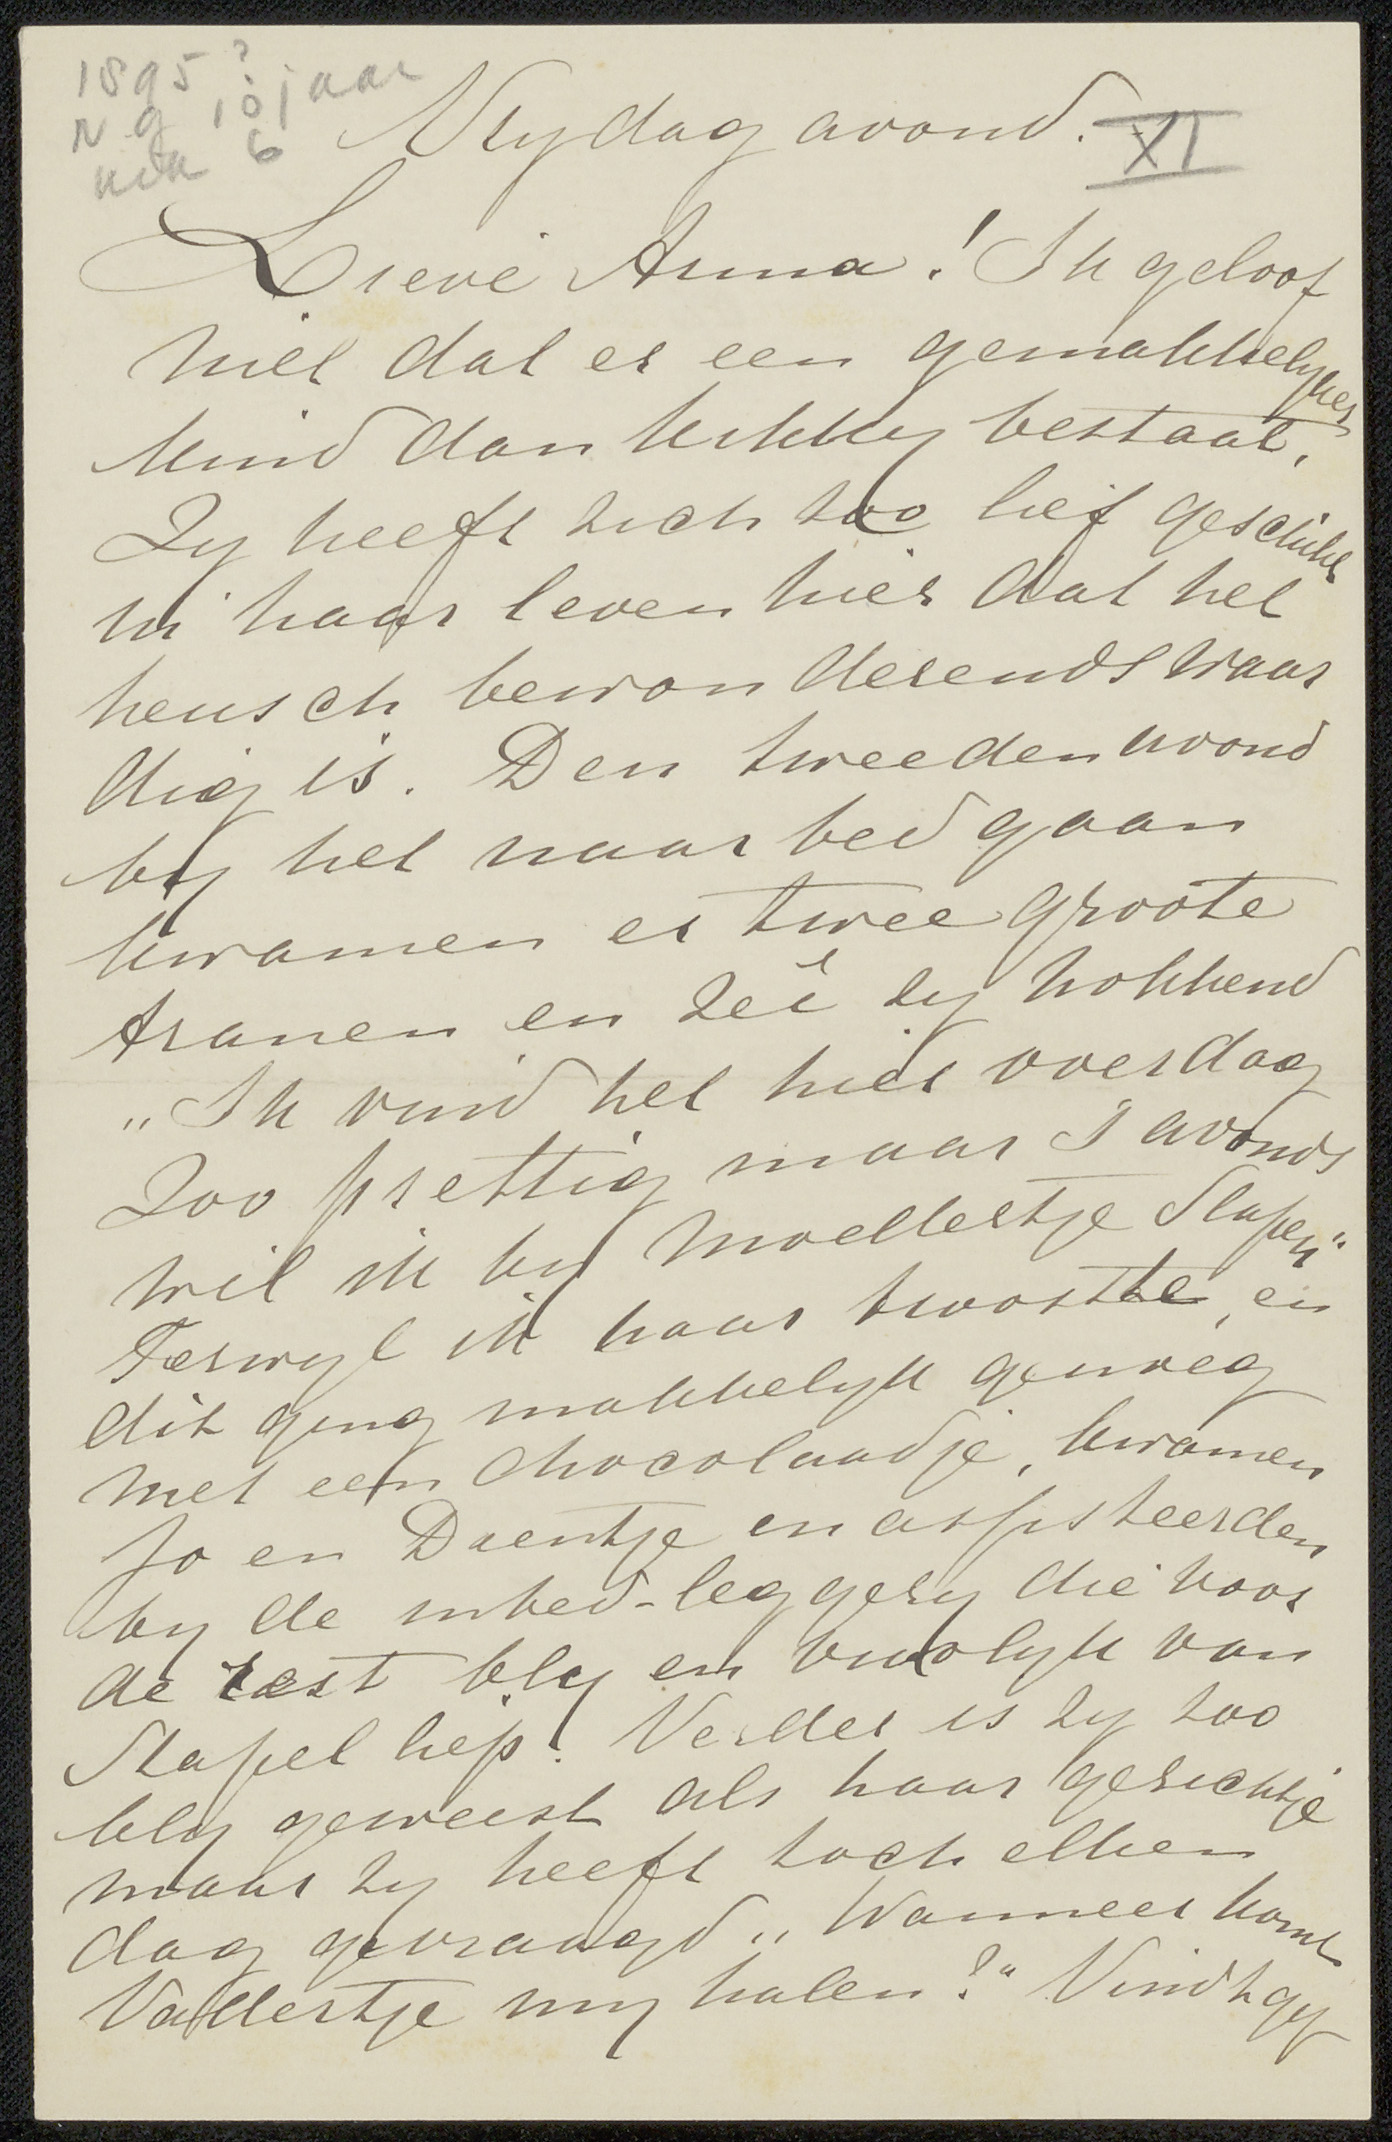 1895?
10 jaar
6
Vrydag avond.
XI
Lieve Anna! Ik geloof
niet dat er een gemakkelyker
kind dan Kikky bestaat.
Zy heeft zich zoo lief geschikt
in haar leven hier dat het
heusch bewonderendswaar
dig is. Den tweeden avond
by het naar bed gaan
kwamen er twee groote
tranen en zeî zy snokkend
"Ik vind het hier overdag
Zoo prettig maar s'avonds
wil ik by Moedertje slapen"
Terwyl ik haar troostte, en
dit ging makkelyk genoeg
met een chocolaadje, kwamen
Jo en Daentje en assisteerden
by de inbed-leggery die voor
de rest bly en vrolyk van
Stapel liep. Verder is zy zoo
bly geweest als haar gezichtje
maar zy heeft toch elken
dag gevraagd "Wanneer komt
Vadertje my halen?" Vindt gy